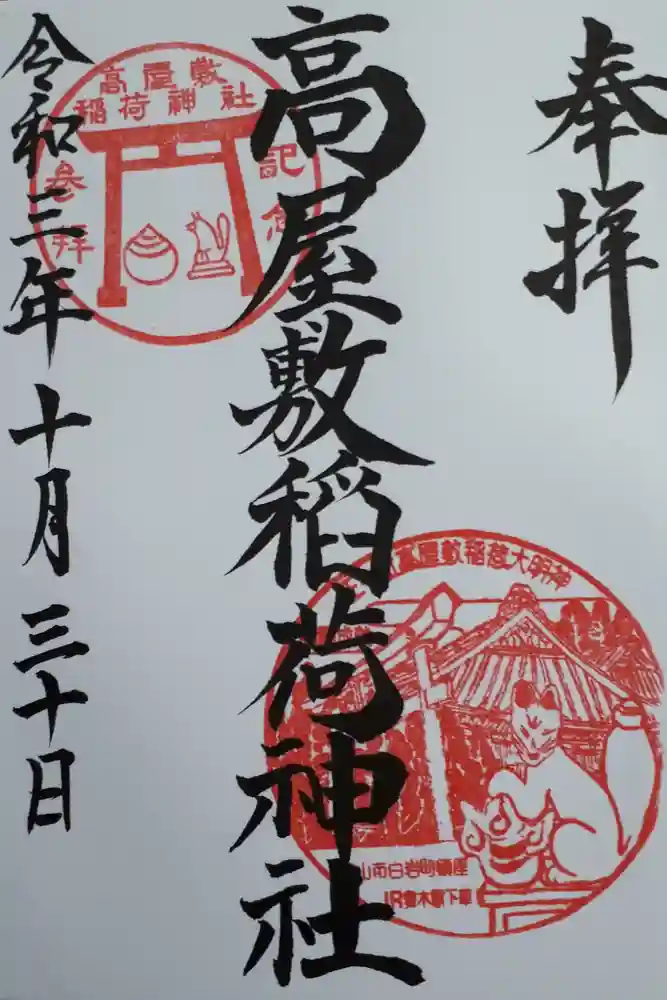 奉拝
高屋敷稲荷神社
令和三年十月三十日
高屋敷
稲荷神社
参拝
記念
高屋敷稲荷大明神
山市白岩町鎮座
下車